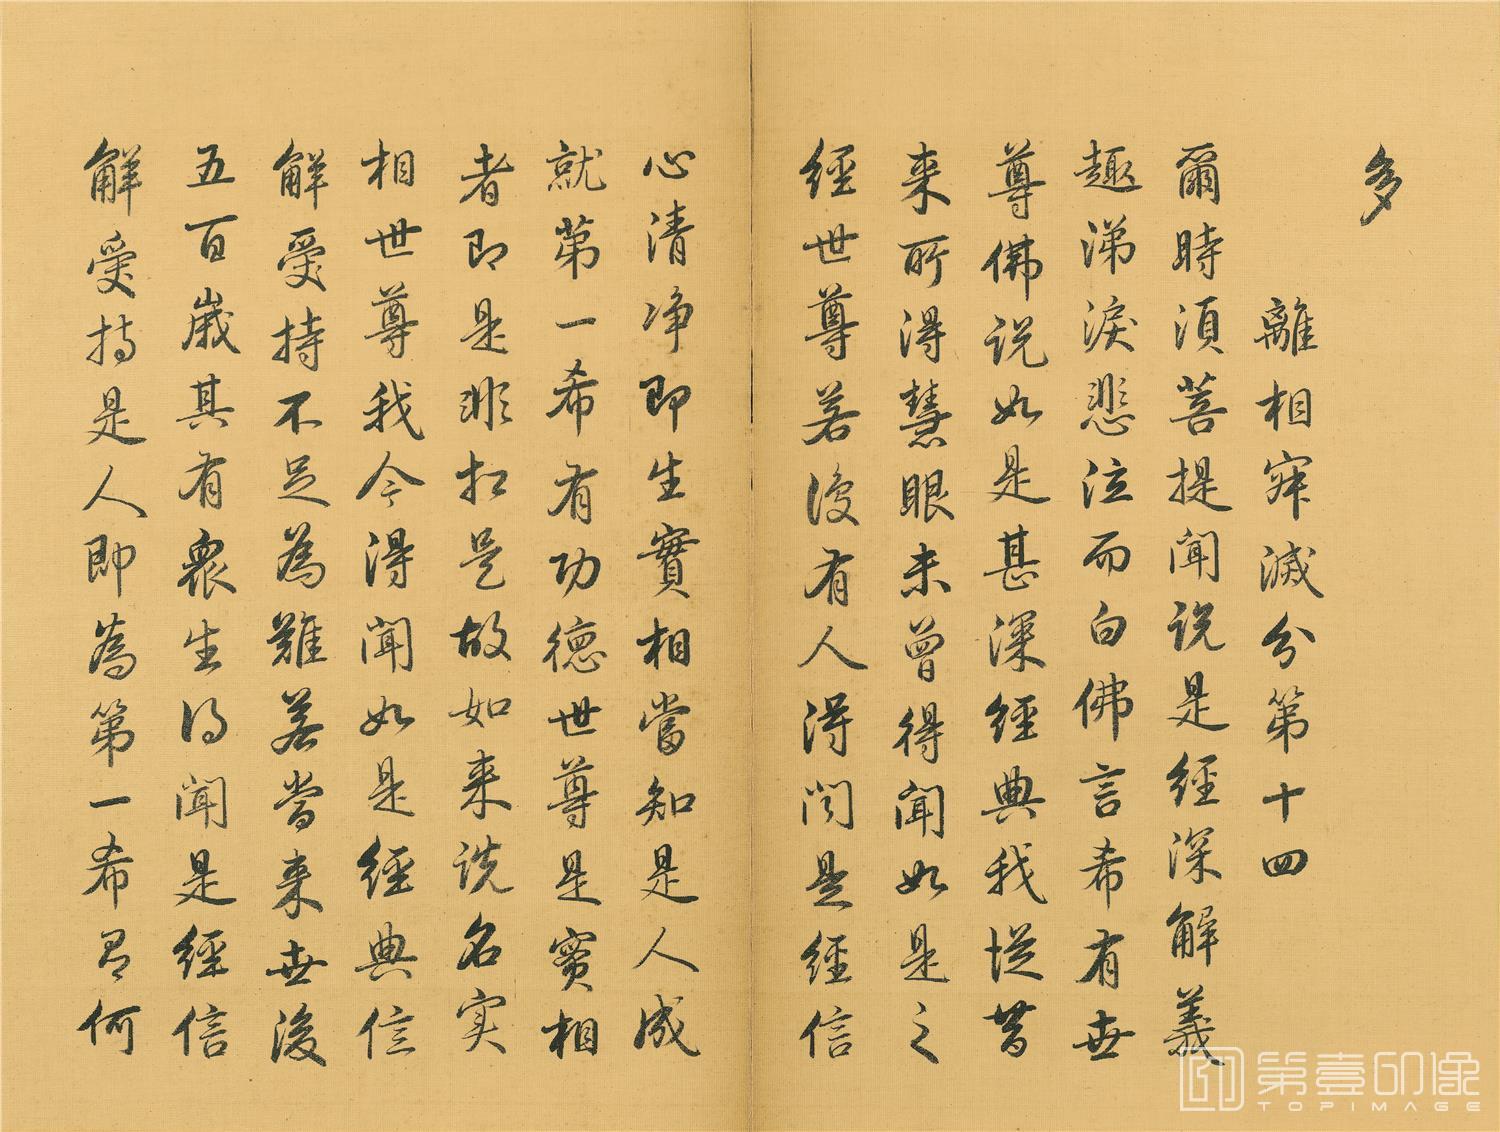 多
離相寂滅分第十四
爾時須菩提聞說是經深解義
趣涕淚悲泣而白佛言希有世
尊佛说如是甚深經典我從昔
来所得慧眼未曾得聞如是之
經世尊若復有人得闻是經信
心清净即生實相當知是人成
就第一希有功德世尊是實相
者即是非相是故如来说名实
相世尊我今得聞如是經典信
解受持不足為難若當来世後
五百歲其有衆生得聞是經信
解受持是人即為第一希有何
第壹印像
TOPIMAGE